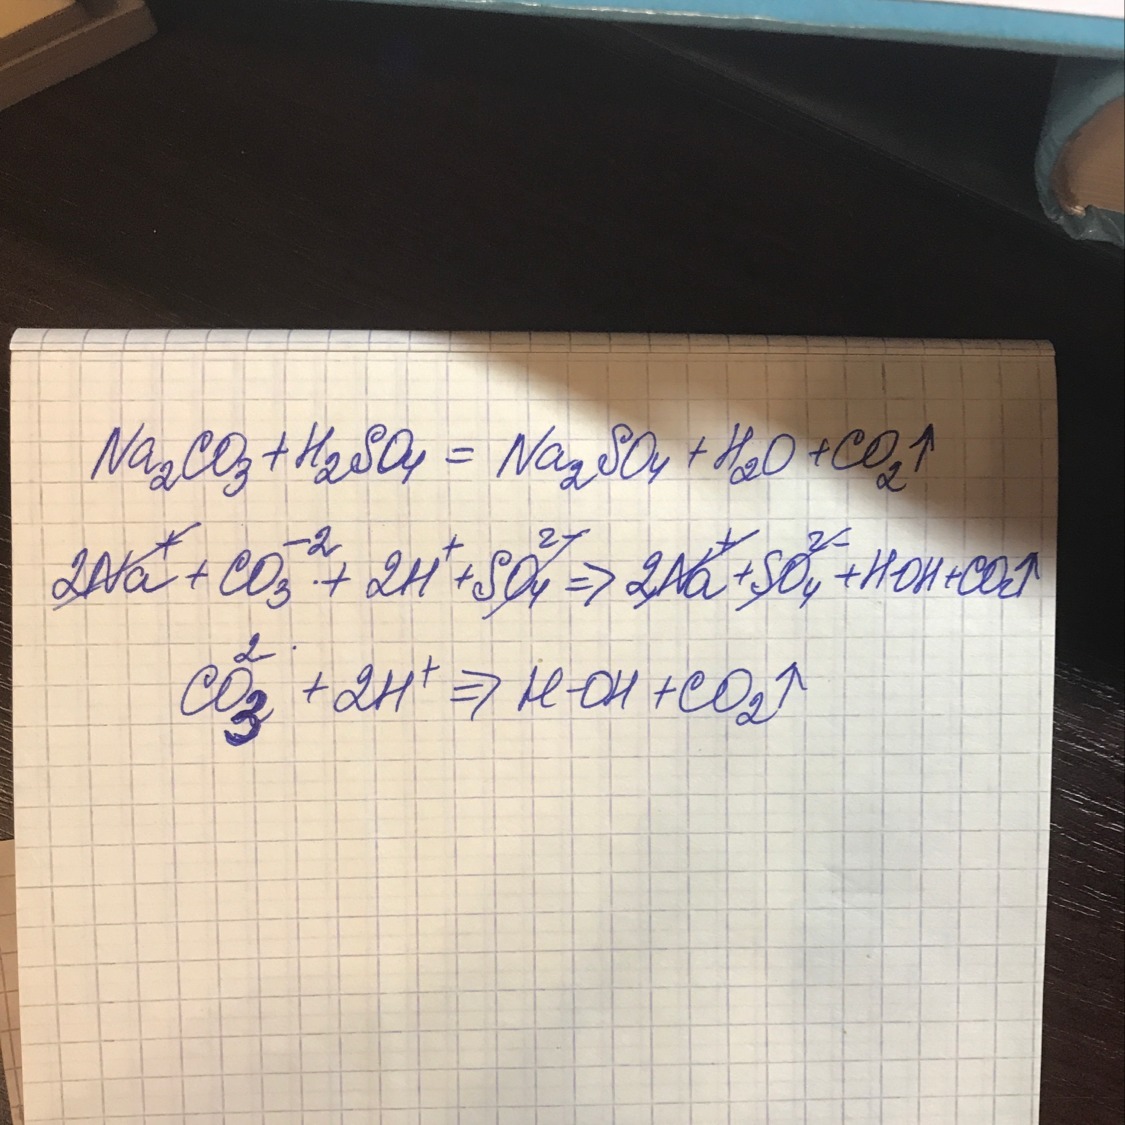 Na₂CO₃ + H₂SO₄ = Na₂SO₄ + H₂O + CO₂↑
2Na⁺ + CO₃⁻² + 2H⁺ + SO₄²⁻ ⇒ 2Na⁺ + SO₄²⁻ + HOH + CO₂↑
CO₃²⁻ + 2H⁺ ⇒ H-OH + CO₂↑